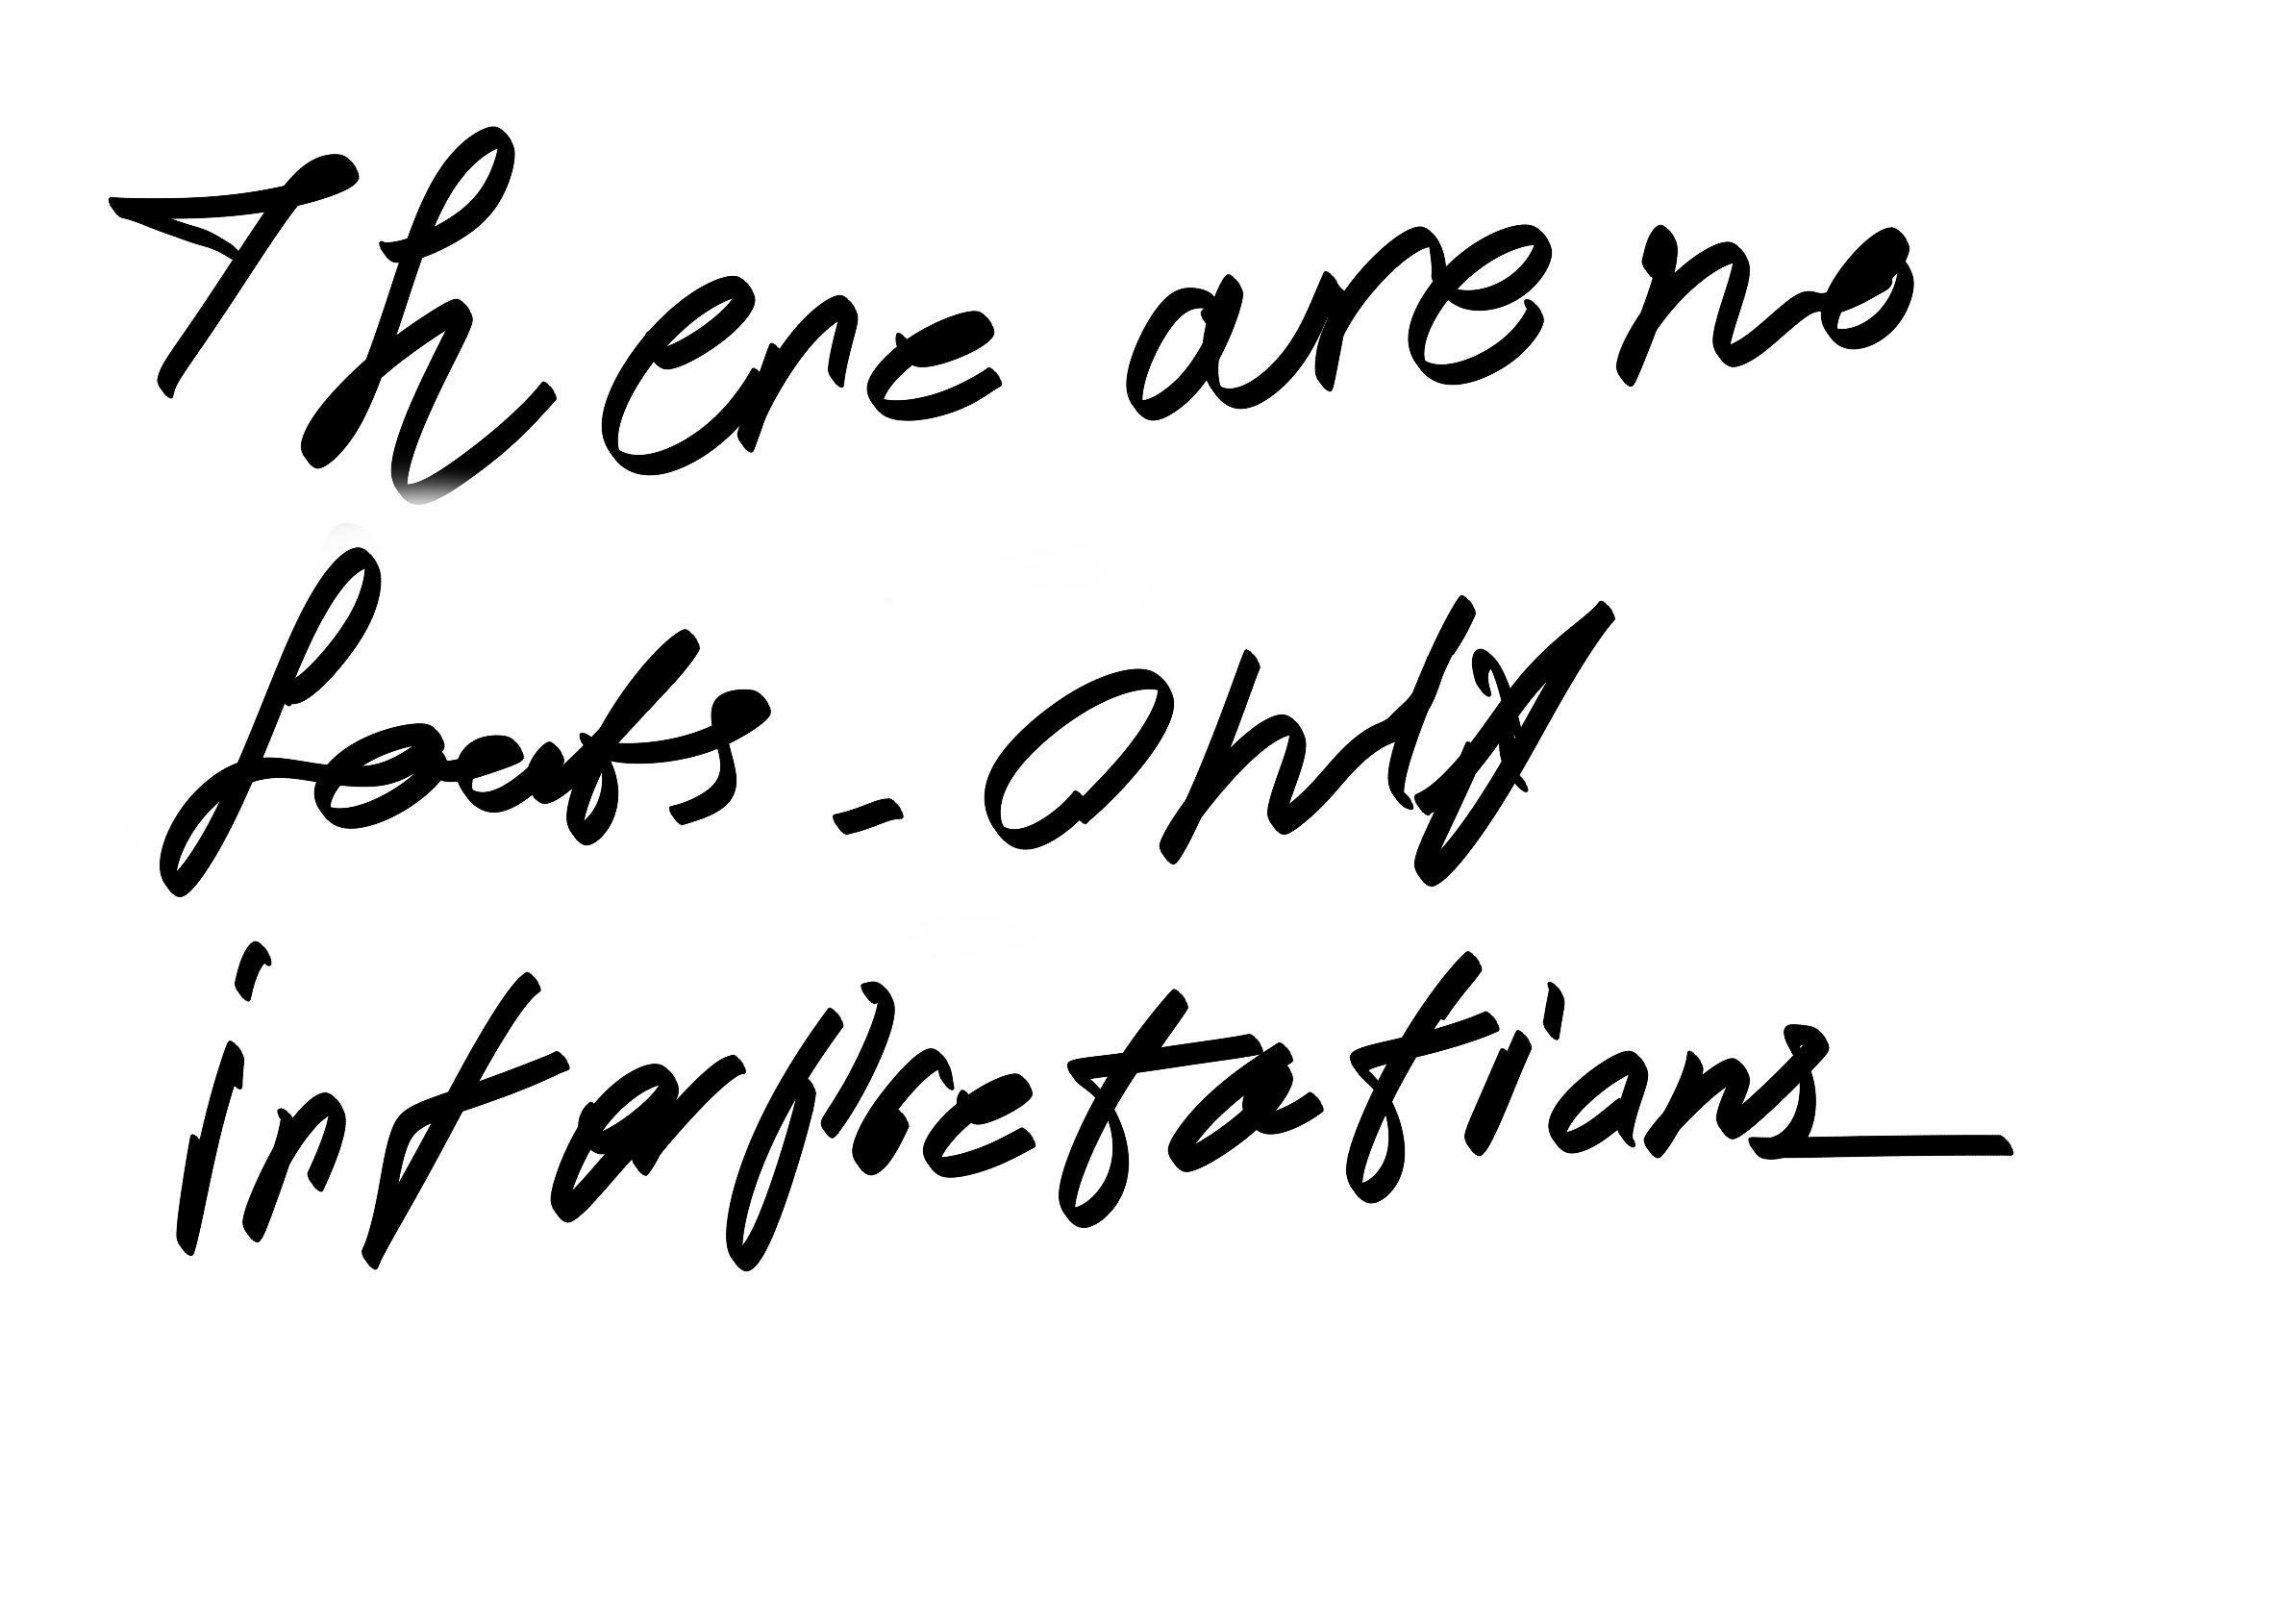 There are no
facts - only
interpretations